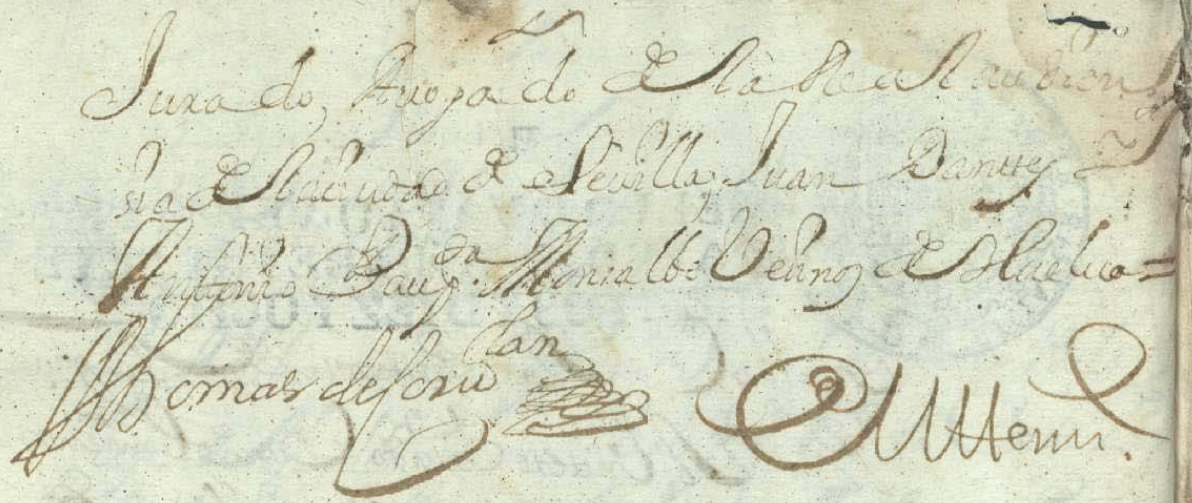 Jurado, Avogado de la Real audien
sia de la Ciudad de Sevilla, Juan Banttes
Anttonio Baup.ta Monialbo Vecinos de Huelva =
Thomas de
Ante mi.